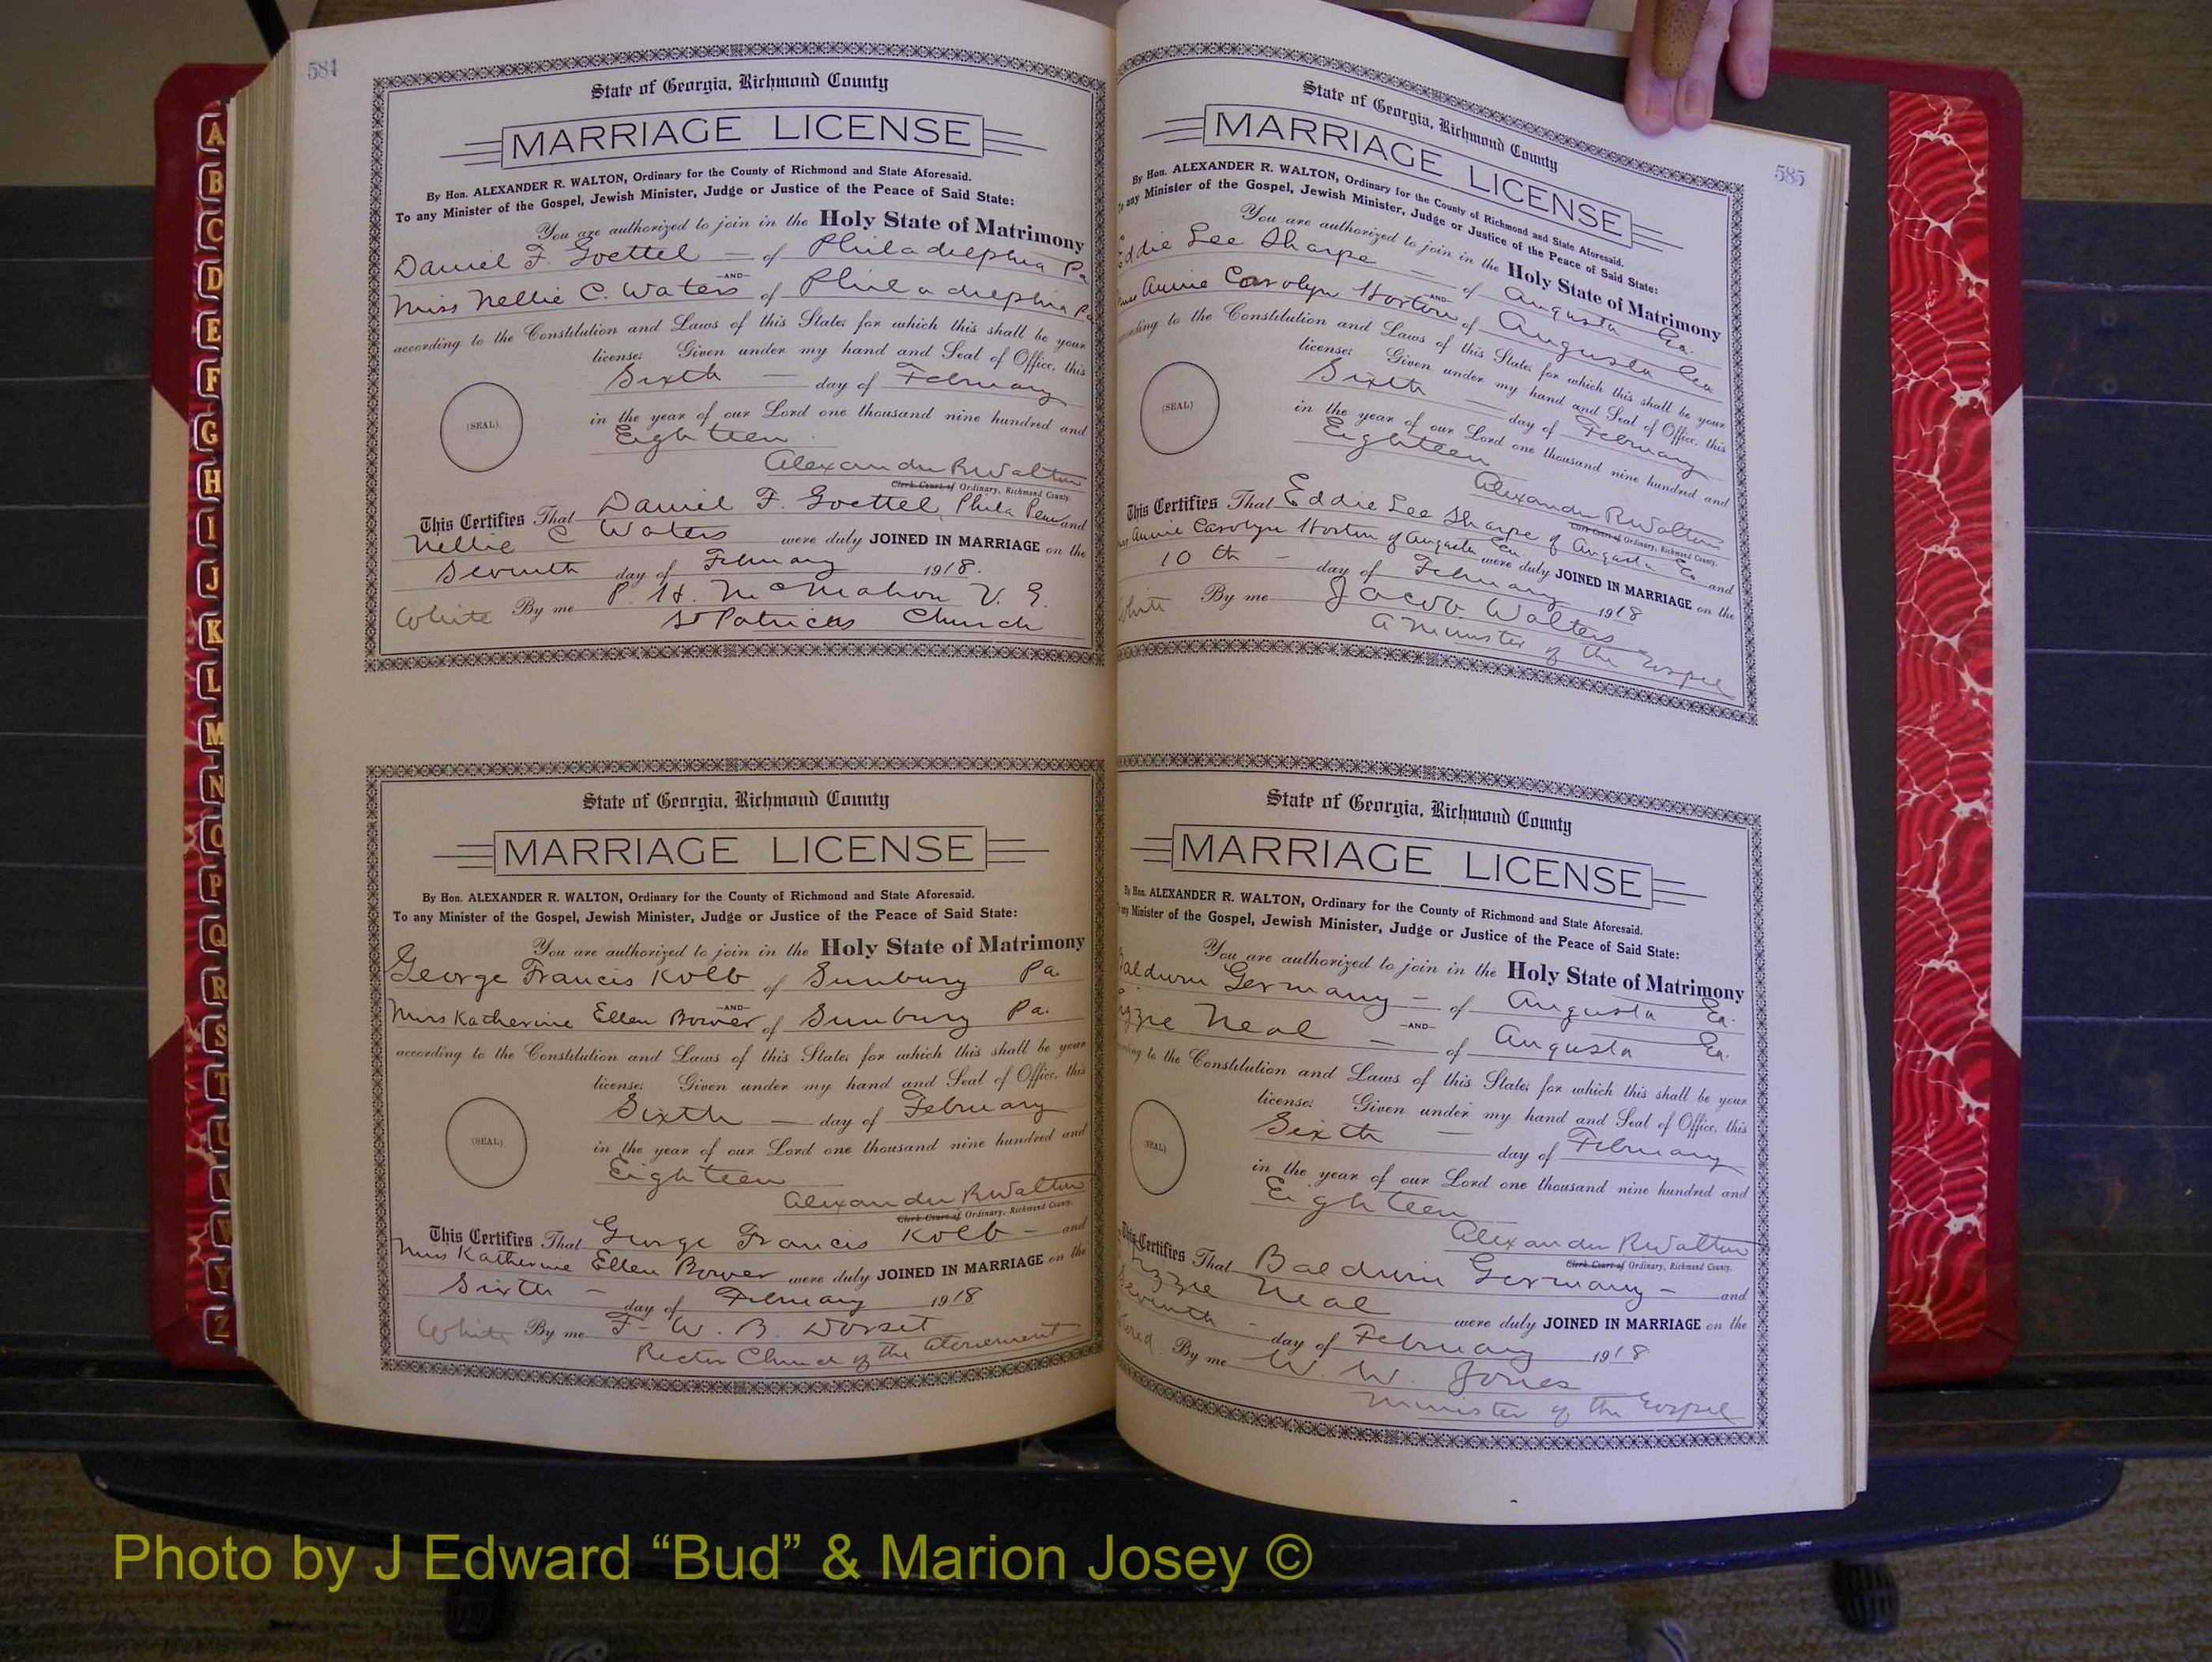 584
State of Georgia, Richmond County
MARRIAGE LICENSE
By Hon. ALEXANDER R. WALTON, Ordinary for the County of Richmond and State Aforesaid.
To any Minister of the Gospel, Jewish Minister, Judge or Justice of the Peace of Said State:
You are authorized to join in the Holy State of Matrimony
Daniel F. Goettel — of Philadelphia Pa
—AND—
Miss Nellie C. Waters of Philadelphia Pa
according to the Constitution and Laws of this State; for which this shall be your
license: Given under my hand and Seal of Office, this
Sixth — day of February
(SEAL)
in the year of our Lord one thousand nine hundred and
Eighteen
Alexander R Walton
Clerk Court of Ordinary, Richmond County
This Certifies That Daniel F. Goettel, Phila Penn and
Nellie C Waters were duly JOINED IN MARRIAGE on the
Seventh day of February 1918.
White By me P. H. McMahon V. G.
St Patricks Church
State of Georgia, Richmond County
MARRIAGE LICENSE
By Hon. ALEXANDER R. WALTON, Ordinary for the County of Richmond and State Aforesaid.
To any Minister of the Gospel, Jewish Minister, Judge or Justice of the Peace of Said State:
You are authorized to join in the Holy State of Matrimony
George Francis Kolb of Sunbury Pa.
—AND—
Miss Katherine Ellen Bower of Sunbury Pa.
according to the Constitution and Laws of this State; for which this shall be your
license: Given under my hand and Seal of Office, this
Sixth — day of February
(SEAL)
in the year of our Lord one thousand nine hundred and
Eighteen
Alexander R Walton
Clerk Court of Ordinary, Richmond County.
This Certifies That George Francis Kolb — and
Miss Katherine Ellen Bower were duly JOINED IN MARRIAGE on the
Sixth — day of February 1918
White By me F. W. B. Dorset
Rector Church of the Atonement
585
State of Georgia, Richmond County
MARRIAGE LICENSE
By Hon. ALEXANDER R. WALTON, Ordinary for the County of Richmond and State Aforesaid.
To any Minister of the Gospel, Jewish Minister, Judge or Justice of the Peace of Said State:
You are authorized to join in the Holy State of Matrimony
Eddie Lee Sharpe — of Augusta Ga.
—AND—
Miss Annie Carolyn Horton of Augusta Ga
according to the Constitution and Laws of this State; for which this shall be your
license: Given under my hand and Seal of Office, this
Sixth — day of February
(SEAL)
in the year of our Lord one thousand nine hundred and
Eighteen
Alexander R Walton
Clerk Court of Ordinary, Richmond County.
This Certifies That Eddie Lee Sharpe of Augusta Ga and
Miss Annie Carolyn Horton of Augusta Ga. were duly JOINED IN MARRIAGE on the
10th — day of February 1918
White By me Jacob Walters
A Minister of the Gospel
State of Georgia, Richmond County
MARRIAGE LICENSE
By Hon. ALEXANDER R. WALTON, Ordinary for the County of Richmond and State Aforesaid.
any Minister of the Gospel, Jewish Minister, Judge or Justice of the Peace of Said State:
You are authorized to join in the Holy State of Matrimony
Baldwin Germany — of Augusta Ga.
—AND—
Lizzie Neal — of Augusta Ga.
according to the Constitution and Laws of this State; for which this shall be your
license: Given under my hand and Seal of Office, this
Sixth — day of February
(SEAL)
in the year of our Lord one thousand nine hundred and
Eighteen
Alexander R Walton
Clerk Court of Ordinary, Richmond County.
This Certifies That Baldwin Germany — and
Lizzie Neal were duly JOINED IN MARRIAGE on the
Seventh — day of February 1918
Colored. By me W. W. Jones
Minister of the Gospel
A
B
C
D
E
F
G
H
I
J
K
L
M
N
O
P
Q
R
S
T
U
V
W
Y
Z
Photo by J Edward “Bud” & Marion Josey ©